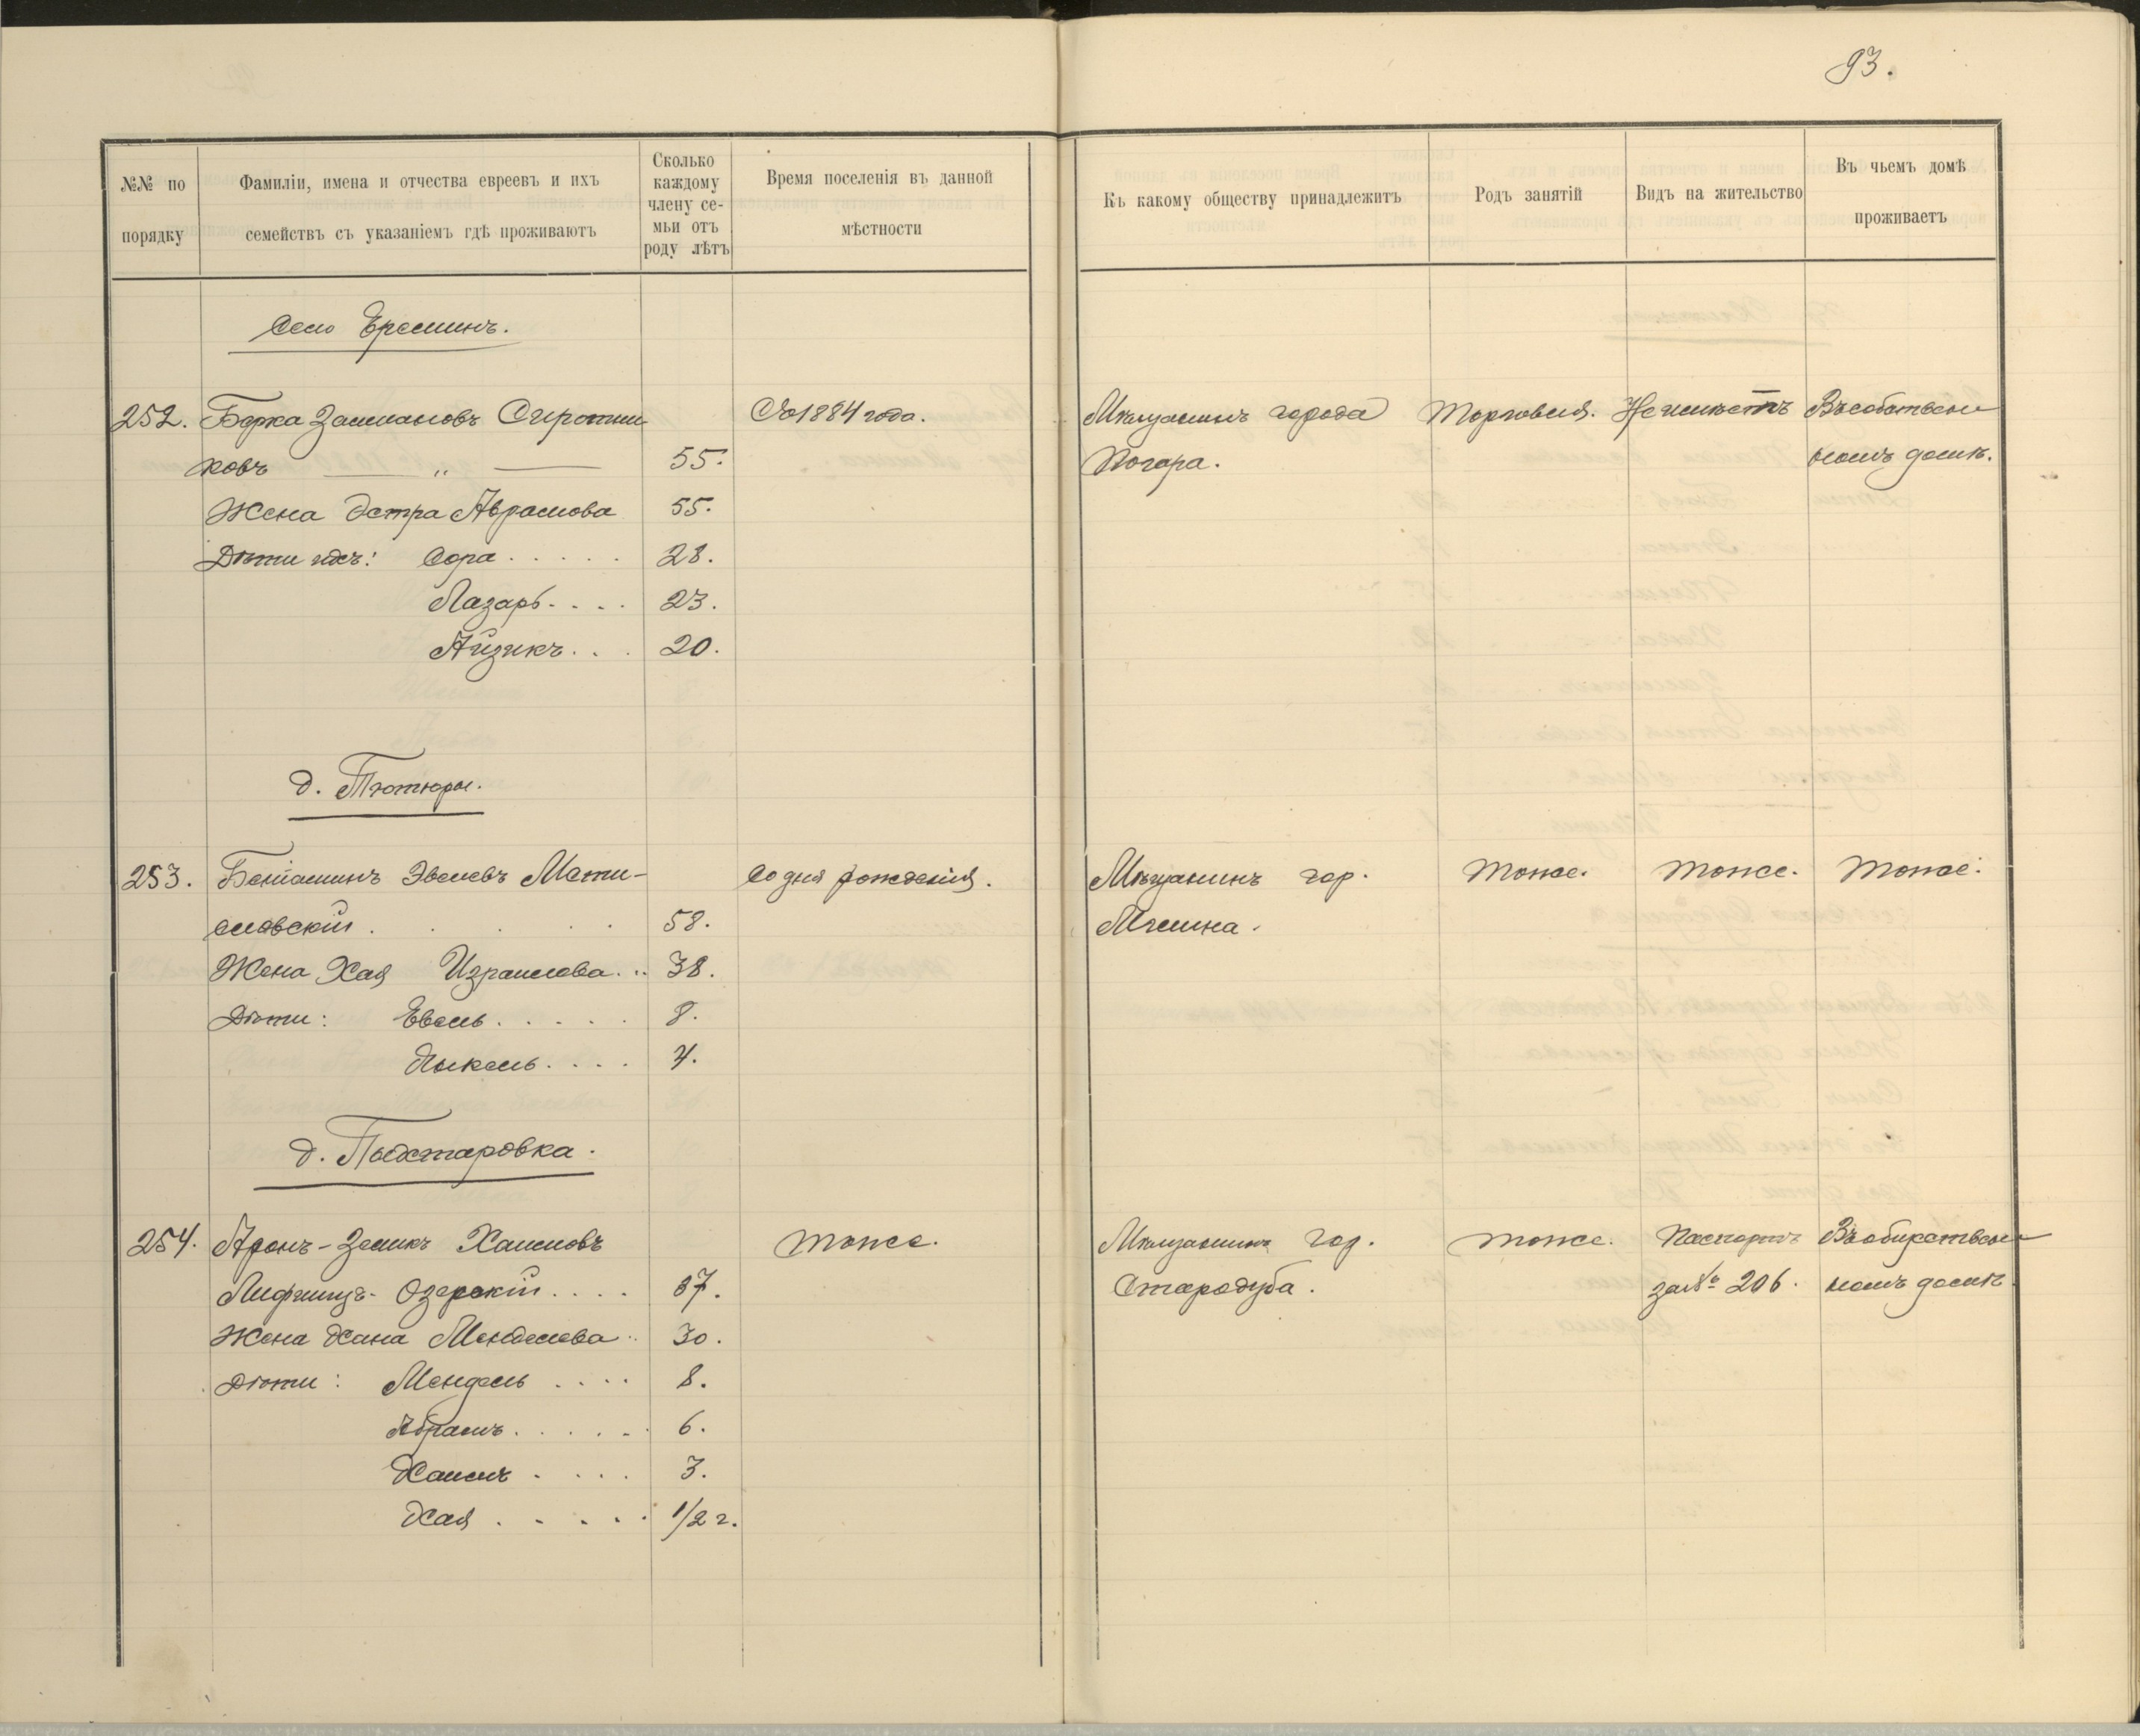 93.
№№ по порядку
Фамиліи, имена и отчества евреевъ и ихъ семействъ съ указаніемъ гдѣ проживаютъ
Сколько каждому члену се-мьи отъ роду лѣтъ
Время поселенія въ данной мѣстности
Къ какому обществу принадлежитъ
Родъ занятій
Видъ на жительство
Въ чьемъ домѣ проживаетъ
Село Еремино.
252. Берка Залмановъ Сиротин- Со 1884 года. Мѣщанинъ города Торговля. Не имѣетъ Въ собствен
ковъ — „ — 55. Погара. номъ домѣ.
Жена Эстра Аврамова 55.
Дѣти ихъ: Сора 28.
Лазарь 23.
Айзикъ 20.
д. Тютюры.
253. Беніаминъ Эвелевъ Мати- Со дня рожденія. Мѣщанинъ гор. Тоже. Тоже. Тоже.
словскій 58. Мглина.
Жена Хая Израилова 38.
Дѣти: Евель 8.
4.
д.
254. Аронъ-Зеликъ Хаимовъ Тоже. Мѣщанинъ гор. Тоже. Паспортъ
Лифшицъ-Озерскій 37. Стародуба. за № 206. номъ домѣ.
Жена Хана Менделева 30.
Дѣти: Мендель 8.
Абрамъ 6.
Хаимъ 3.
Хая 1/2 г.